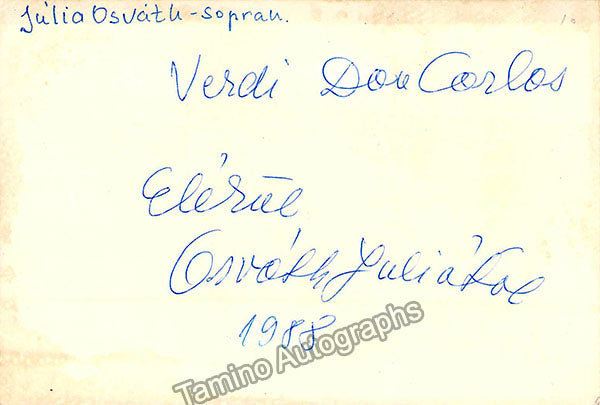 Júlia Osváth - sopran.
Verdi Don Carlos
Osváth Juliától
1988
Tamino Autographs